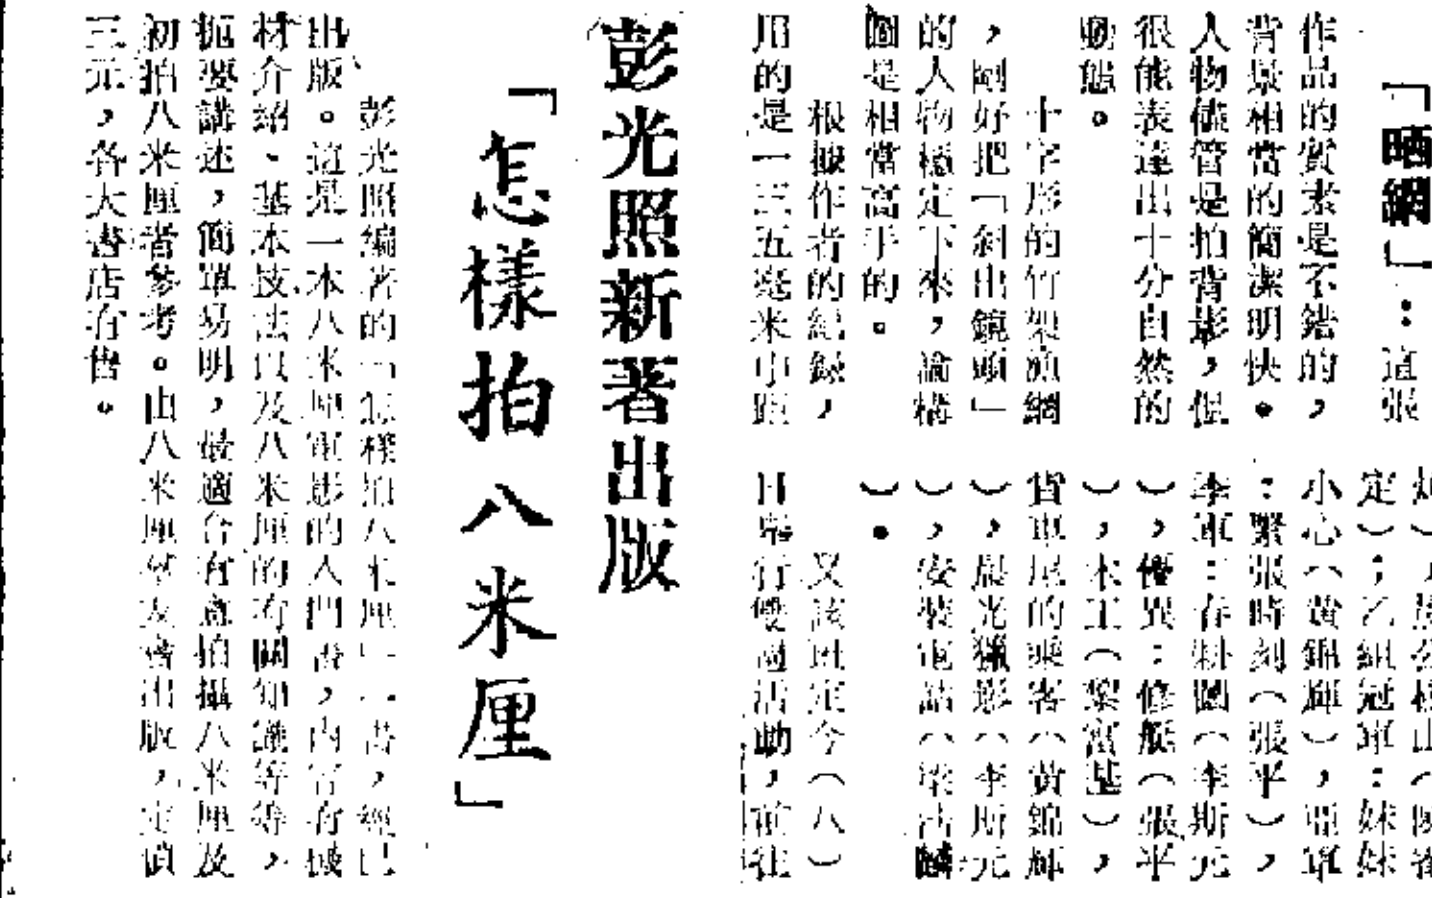 「晒網」：這張
作品的質素是不錯的，
背景相當的簡潔明快。
人物儘管是拍背影，但
很能表達出十分自然的
動態。
十字形的竹架漁網
，剛好把「斜出鏡頭」
的人物穩定下來，論構
圖是相當高手的。
根據作者的紀錄，
用的是一三五毫米中距
定）；乙組冠軍：妹妹
小心（黄錦輝），亞軍
：緊張時刻（張平），
季軍：春耕圖（李斯元
），優異：修艇（張平
），木工（黎富基），
貨車尾的乘客（黄錦輝
），晨光獵影（李斯元
），安裝電話（梁洁麟
）。
又該班定今（八）
日舉行雙週活動，前往
彭光照新著出版
「怎樣拍八米厘」
彭光照編著的「怎樣拍八米厘」一書，經已
出版。這是一本八米厘電影的入門書，內容有機
材介紹、基本技法以及八米厘的有關知識等等，
扼要講述，簡單易明，最適合有意拍攝八米厘及
初拍八米厘者參考。由八米厘影友會出版，定價
三元，各大書店有售。